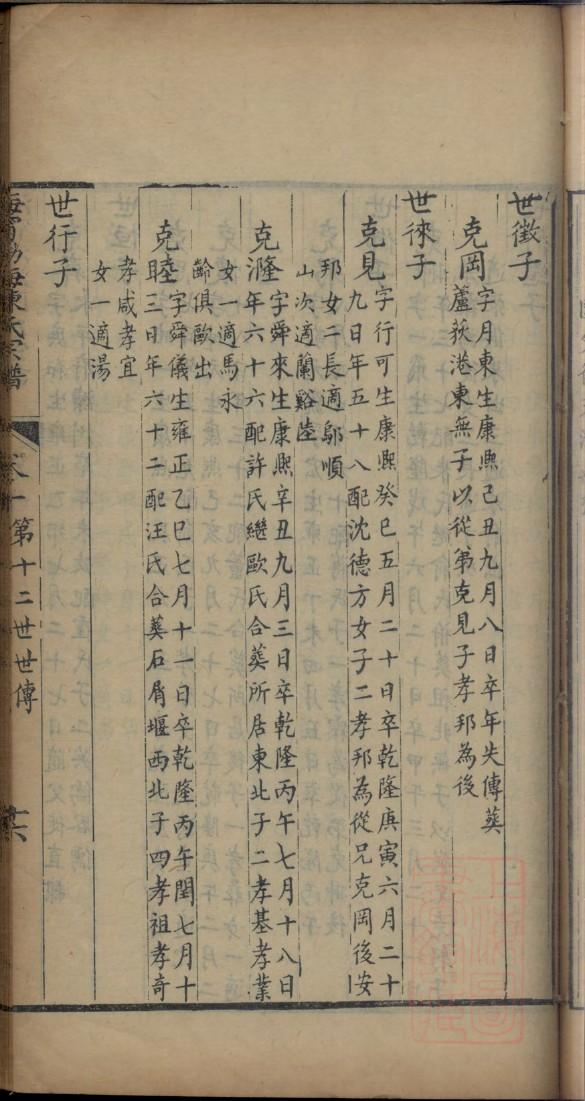 世徵子
克岡字月東生康熙己丑九月八日卒年失傳葬
蘆荻港東無子以從弟克見子孝邦為後
世徠子
克見字行可生康熙癸巳五月二十日卒乾隆庚寅六月二十
九日年五十八配沈德方女子二孝邦為從兄克岡後安
邦女二長適鄔順
山次適蘭谿陸
克隆字舜來生康熙辛丑九月三日卒乾隆丙午七月十八日
年六十六配許氏繼歐氏合葬所居東北子二孝基孝業
女一適馬永
齡俱歐出
克睦字舜儀生雍正乙巳七月十一日卒乾隆丙午閏七月十
三日年六十二配汪氏合葬石屑堰西北子四孝祖孝奇
孝咸孝宜
女一適湯
世行子
海寧渤海陳氏宗譜
第十二世世傳